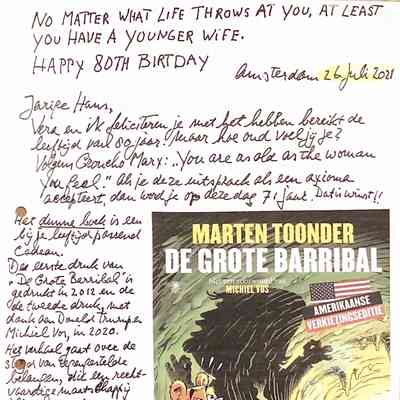 NO MATTER WHAT LIFE THROWS AT YOU, AT LEAST
YOU HAVE A YOUNGER WIFE.
HAPPY 80TH BIRTDAY
Amsterdam 26 juli 2021
Jarige Hans,
Vera en ik feliciteren je met het hebben bereikt de
leeftijd van 80 jaar. Maar hoe oud voel jij je?
Volgens Groucho Marx: "You are as old as the woman
you feel." Als je deze uitspraak als een axioma
accepteert, dan word je op deze dag 71 jaar. Dat is winst!!
Het dunne boek is een
bij je leeftijd passend
cadeau.
De eerste druk van
"De Grote Barribal" is
gedrukt in 2012 en de
de tweede druk, met
dank van Donald Trump en
Michiel Vos, in 2020.
Het verhaal gaat over de
strijd van
belangen, die een recht-
vaardige maatschappij
MARTEN TOONDER
DE GROTE BARRIBAL
Met een voorwoord van
MICHIEL VOS
AMERIKAANSE
VERKIEZINGSEDITIE